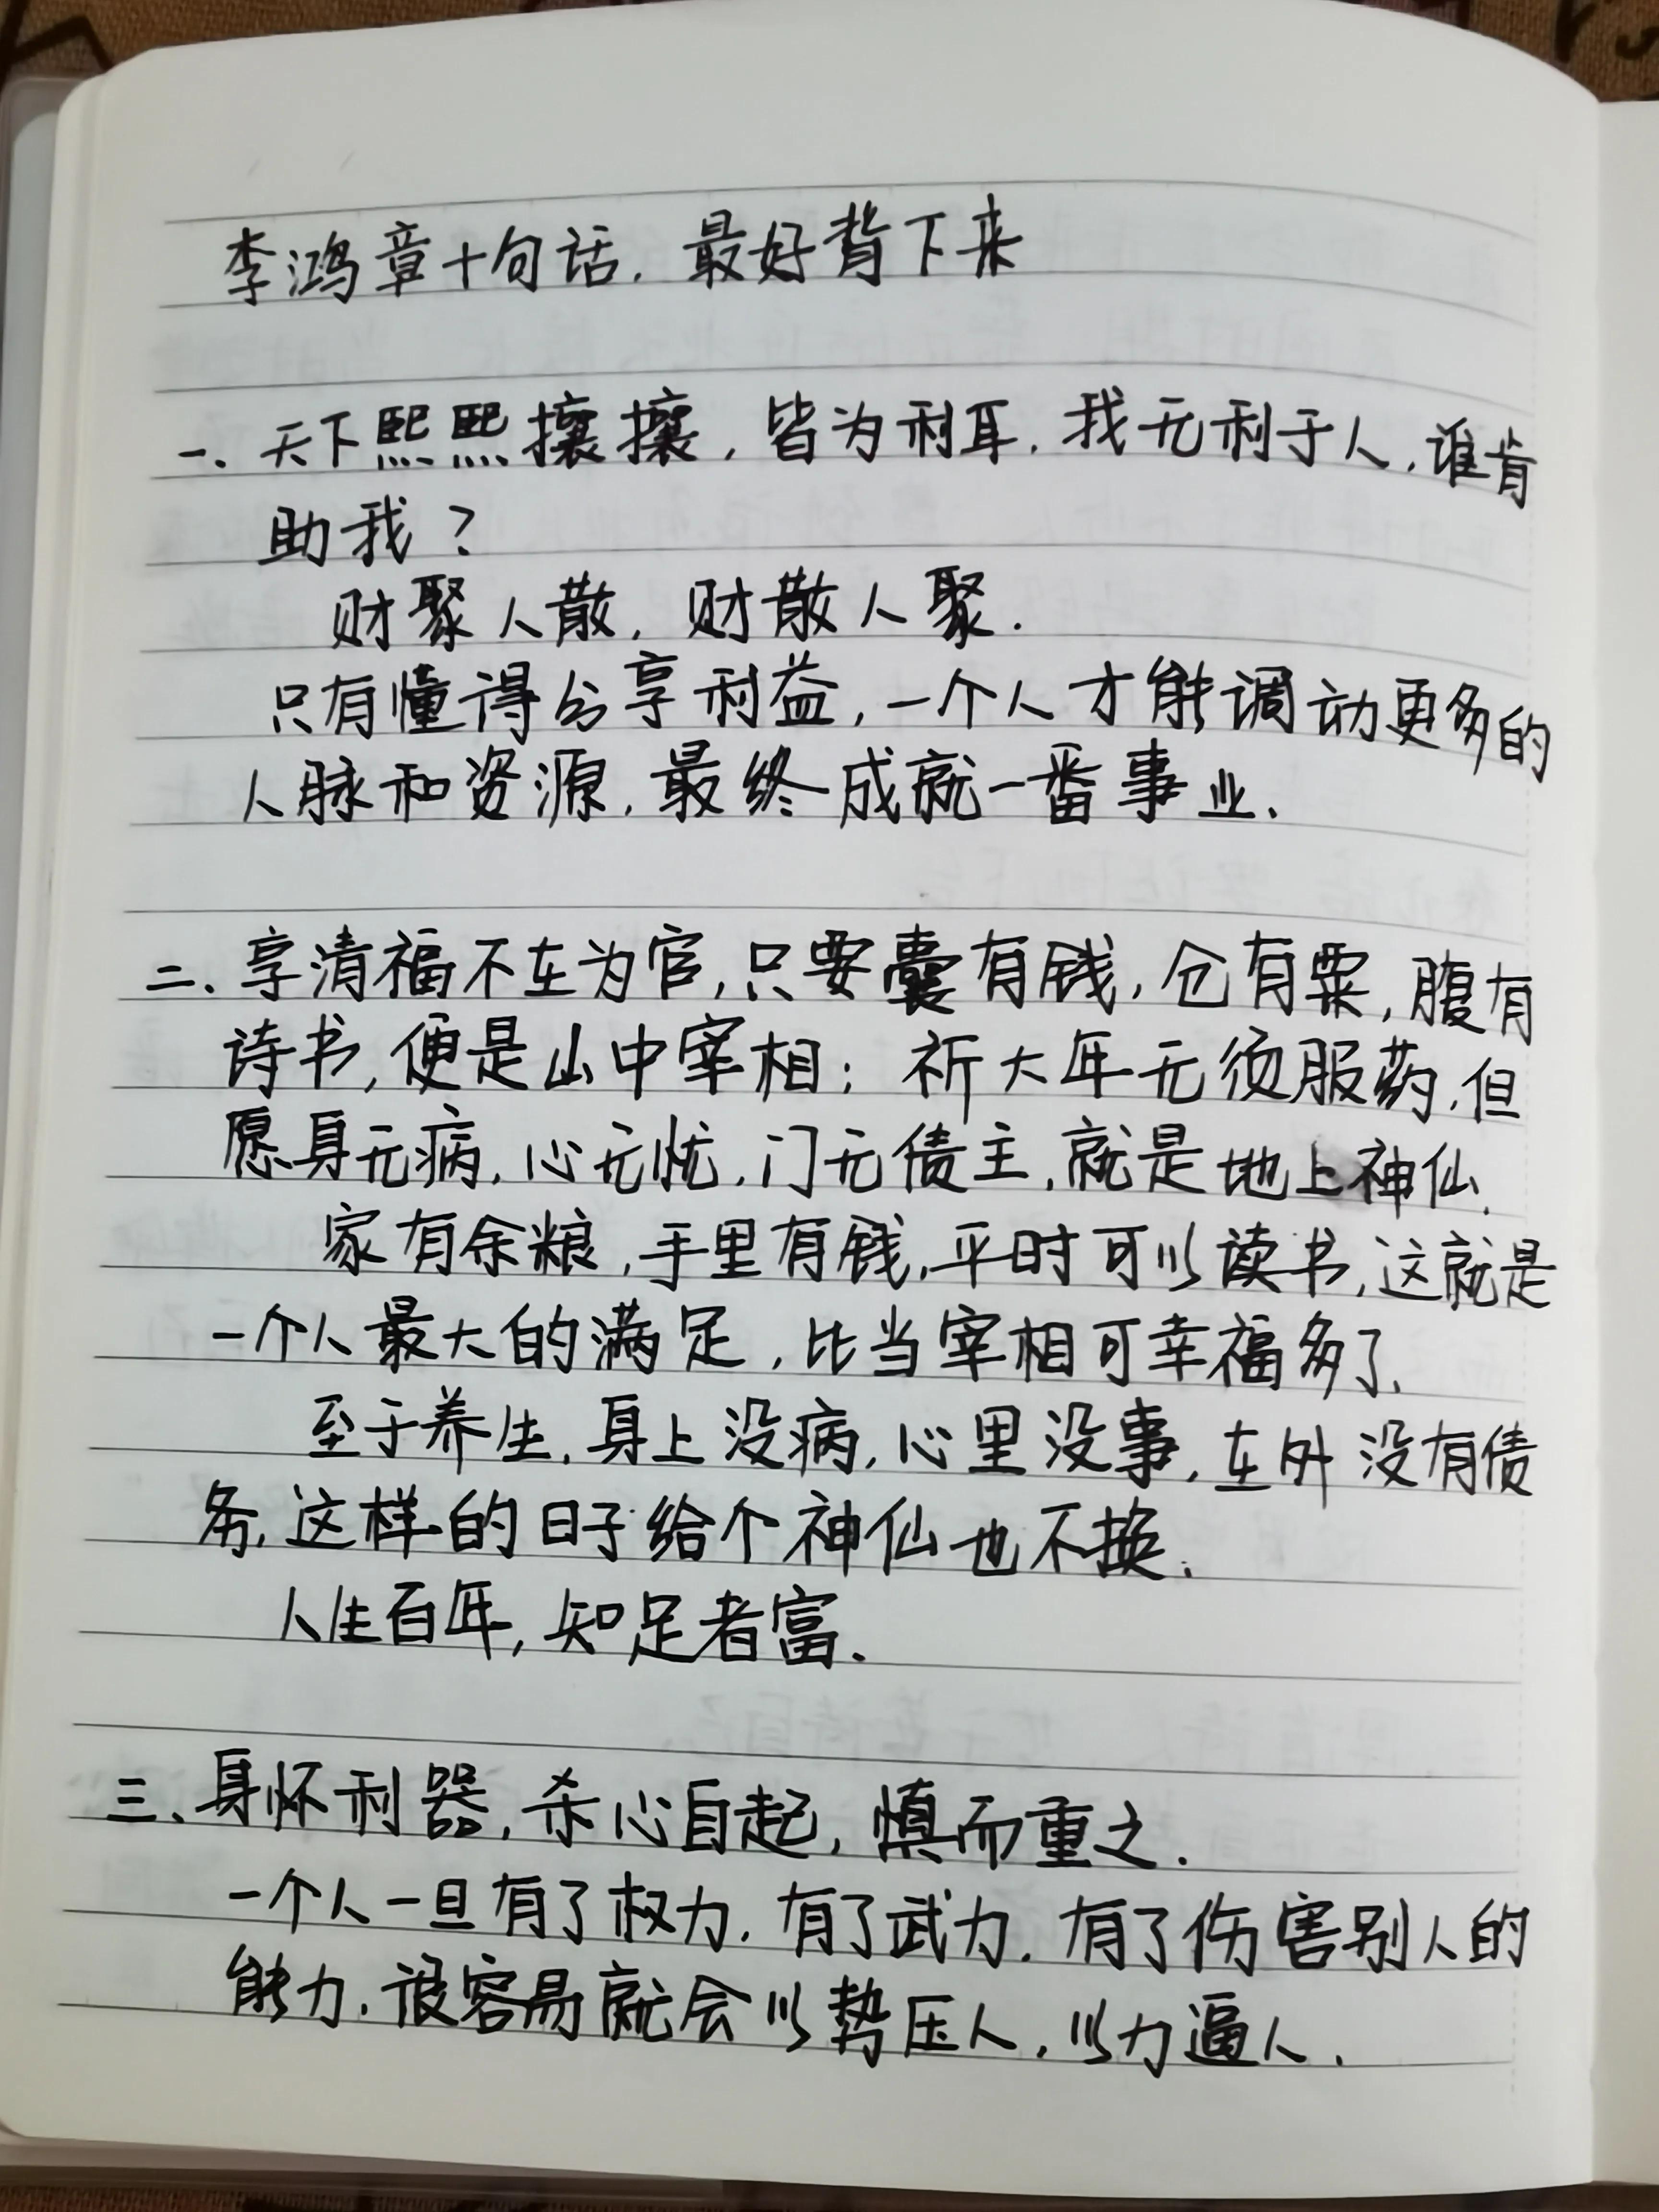 李鸿章十句话.最好背下来
一、天下熙熙攘攘,皆为利耳.我无利于人.谁肯
助我?
财聚人散,财散人聚.
只有懂得分享利益,一个人才能调动更多的
人脉和资源,最终成就一番事业.
二、享清福不在为官,只要囊有钱,仓有粟,腹有
诗书,便是山中宰相;祈大年无须服药.但
愿身无病,心无忧.门无债主,就是地上神仙.
家有余粮,手里有钱,平时可以读书,这就是
一个人最大的满足,比当宰相可幸福多了.
至于养生.身上没病,心里没事,在外没有债
务,这样的日子给个神仙也不换.
人生百年,知足者富.
三、身怀利器,杀心自起,慎而重之.
一个人一旦有了权力.有了武力.有了伤害别人的
能力.很容易就会以势压人.以力逼人.